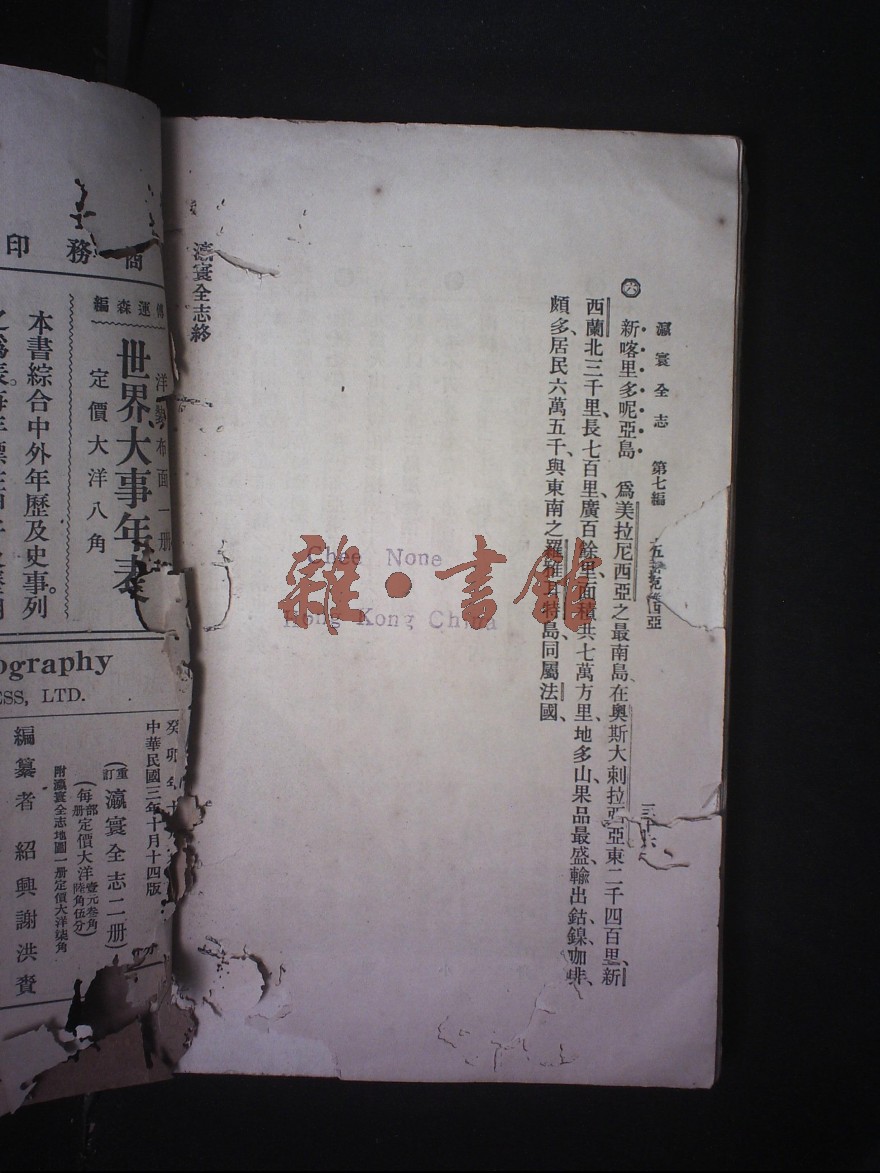 瀛寰全志 第七編
三十六
㊅ 新喀里多呢亞島 爲美拉尼西亞之最南島在奧斯大剌拉西亞東二千四百里、新
西蘭北三千里、長七百里、廣百餘里、面積共七萬方里、地多山、果品最盛、輸出鈷鎳咖啡、
頗多、居民六萬五千、與東南之羅雅耳特島同屬法國、
瀛寰全志終
Chee None
Hong Kong China
雜·書館
商務印
傅運森編
世界大事年表
洋裝布面一册
定價大洋八角
本書綜合中外年歷及史事列
ography
ESS, LTD.
癸卯年
中華民國三年十月十四版
(重訂瀛寰全志二册)
(每部定價大洋壹元叁角)
(每册定價大洋陸角伍分)
附瀛寰全志地圖一册定價大洋柒角
編纂者 紹興謝洪賚